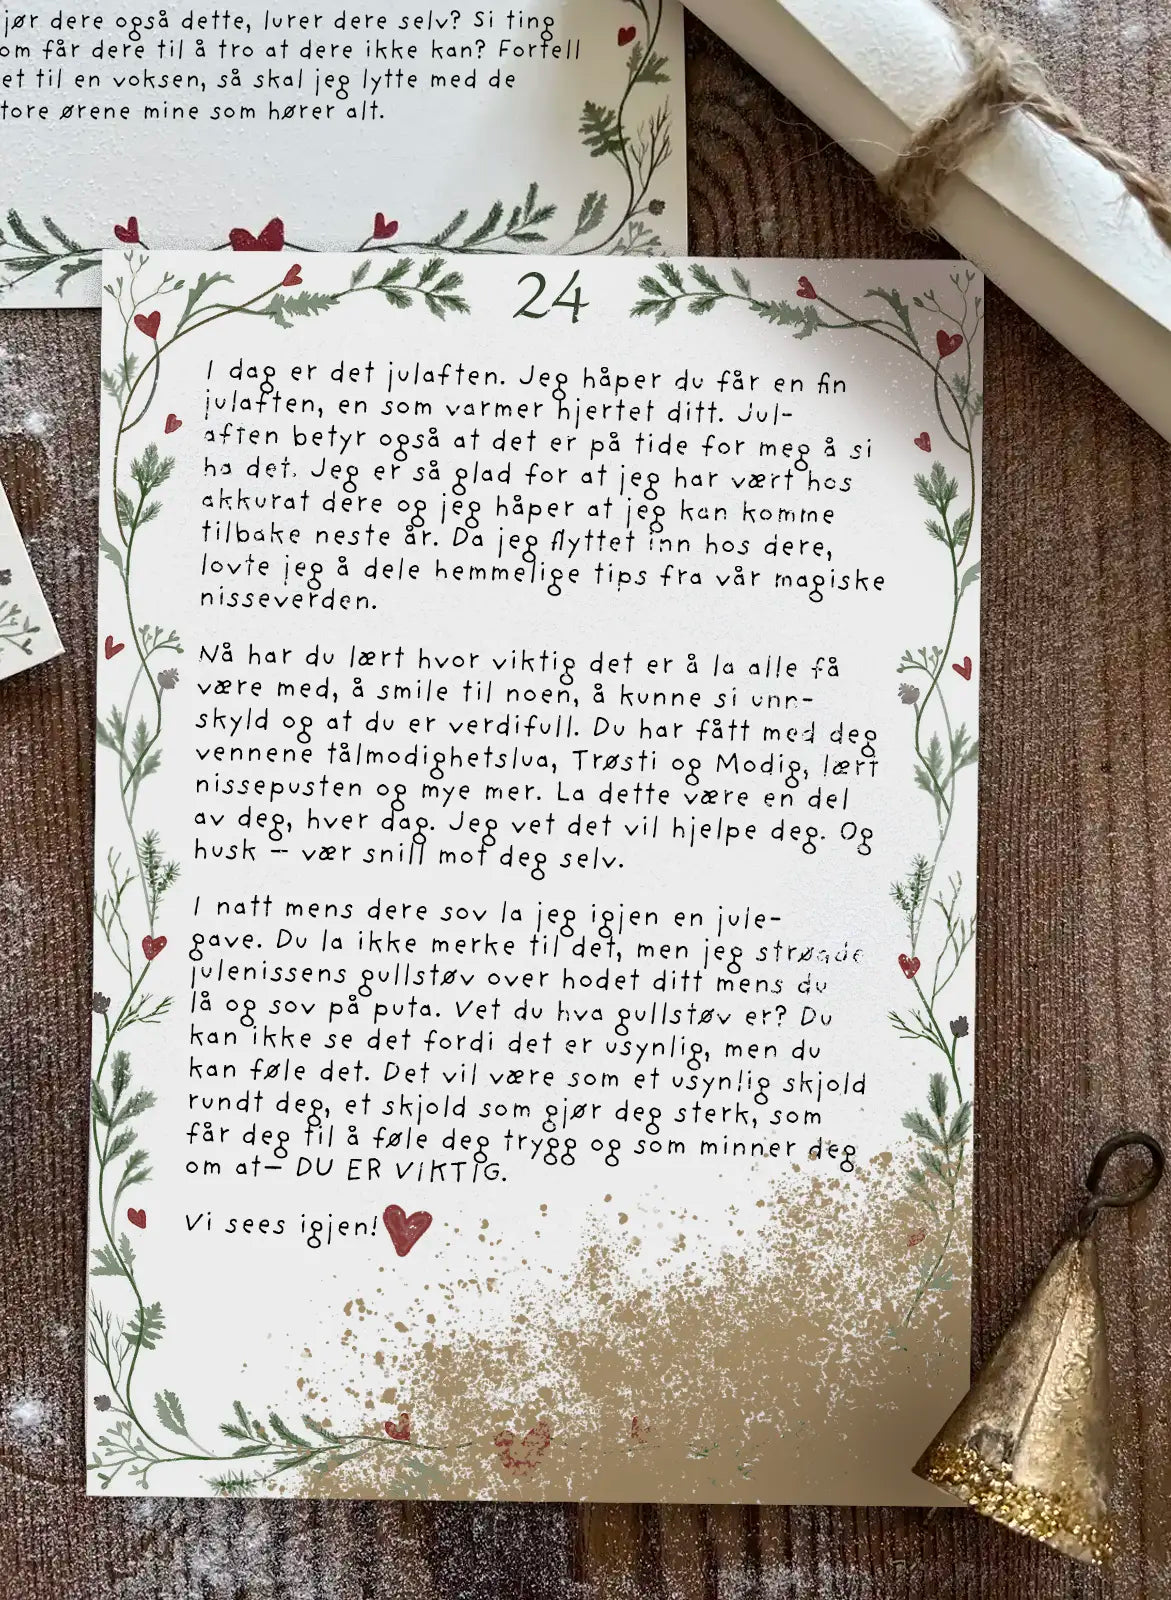 jør dere også dette, lurer dere selv? Si ting
om får dere til å tro at dere ikke kan? Fortell
et til en voksen, så skal jeg lytte med de
tore ørene mine som hører alt.
24
I dag er det julaften. Jeg håper du får en fin
julaften, en som varmer hjertet ditt. Jul-
aften betyr også at det er på tide for meg å si
ha det. Jeg er så glad for at jeg har vært hos
akkurat dere og jeg håper at jeg kan komme
tilbake neste år. Da jeg flyttet inn hos dere,
lovte jeg å dele hemmelige tips fra vår magiske
nisseverden.
Nå har du lært hvor viktig det er å la alle få
være med, å smile til noen, å kunne si unn-
skyld og at du er verdifull. Du har fått med deg
vennene tålmodighetslua, Trøsti og Modig, lært
nissepusten og mye mer. La dette være en del
av deg, hver dag. Jeg vet det vil hjelpe deg. Og
husk - vær snill mot deg selv.
I natt mens dere sov la jeg igjen en jule-
gave. Du la ikke merke til det, men jeg strødde
julenissens gullstøv over hodet ditt mens du
lå og sov på puta. Vet du hva gullstøv er? Du
kan ikke se det fordi det er usynlig, men du
kan føle det. Det vil være som et usynlig skjold
rundt deg, et skjold som gjør deg sterk, som
får deg til å føle deg trygg og som minner deg
om at- DU ER VIKTIG.
Vi sees igjen!